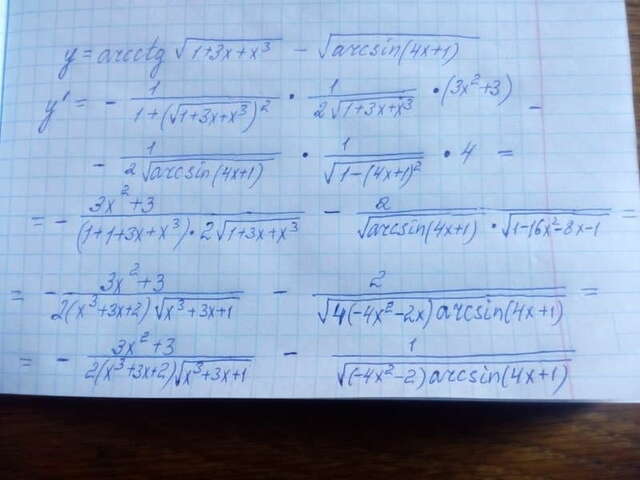 y = arcctg √(1+3x+x³) - √(arcsin(4x+1))
y' = - 1/(1+(√(1+3x+x³))²) · 1/(2√(1+3x+x³)) · (3x²+3) -
- 1/(2√(arcsin(4x+1))) · 1/√(1-(4x+1)²) · 4 =
= - (3x²+3)/((1+1+3x+x³)·2√(1+3x+x³)) - 2/(√(arcsin(4x+1)) · √(1-16x²-8x-1)) =
= - (3x²+3)/(2(x³+3x+2)√(x³+3x+1)) - 2/√(4(-4x²-2x)arcsin(4x+1)) =
= - (3x²+3)/(2(x³+3x+2)√(x³+3x+1)) - 1/√((-4x²-2)arcsin(4x+1))